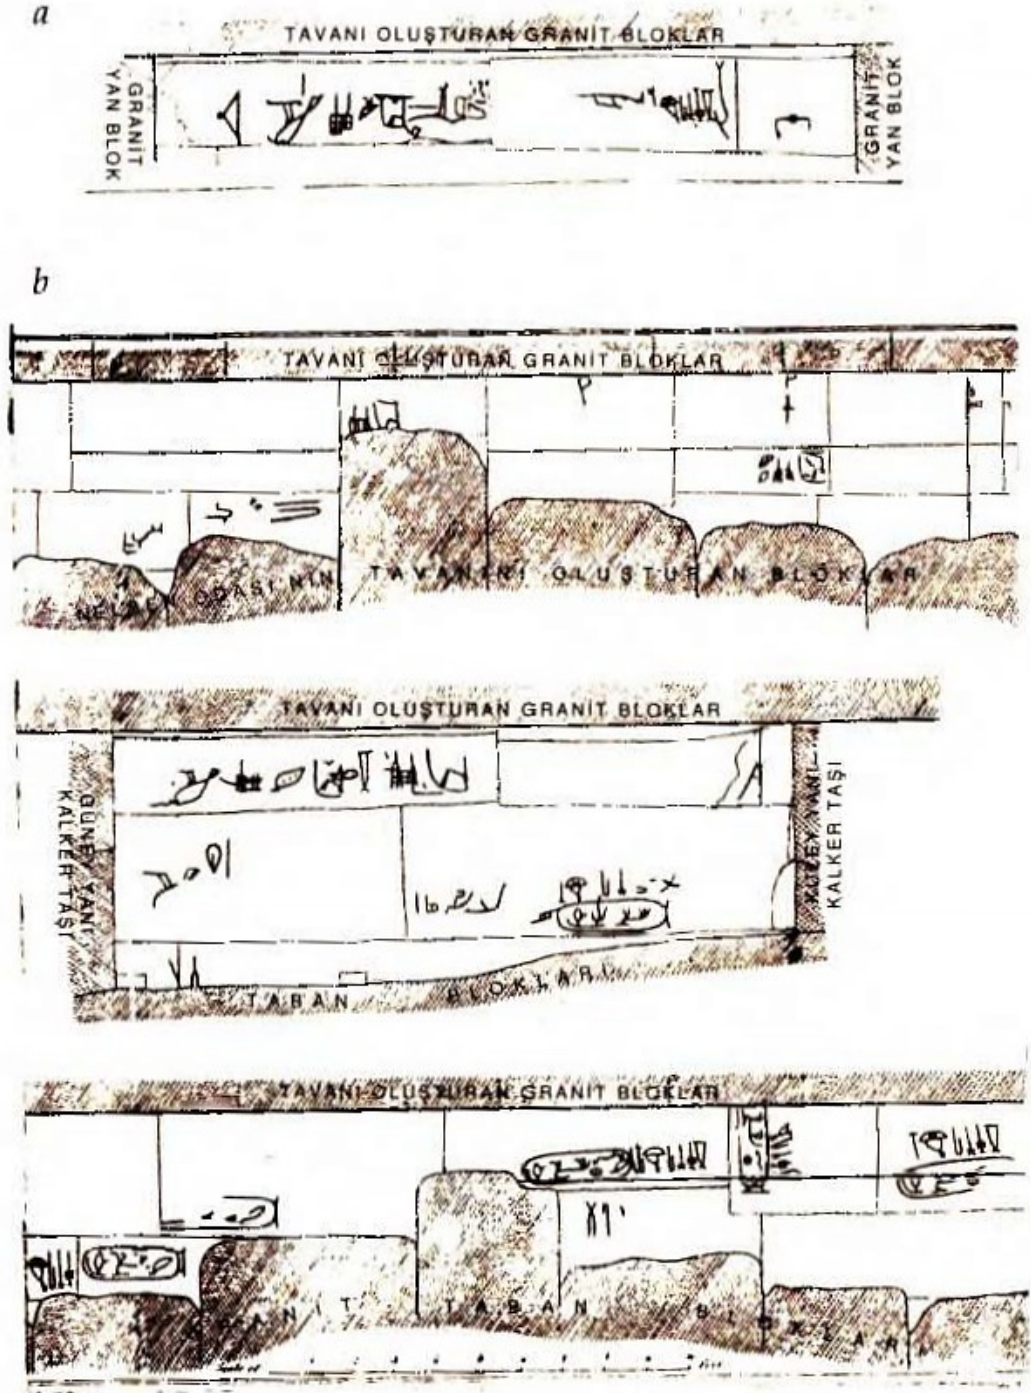 a
TAVANI OLUŞTURAN GRANİT BLOKLAR
GRANİT
YAN BLOK
GRANİT
YAN BLOK
b
TAVANI OLUŞTURAN GRANİT BLOKLAR
ODASI'NIN TAVANINI OLUŞTURAN BLOKLAR
TAVANI OLUŞTURAN GRANİT BLOKLAR
GÜNEY YANI
KALKER TAŞI
KUZEY YANI
KALKER TAŞI
TABAN BLOKLARI
TAVANI OLUŞTURAN GRANİT BLOKLAR
TABAN
Scale of